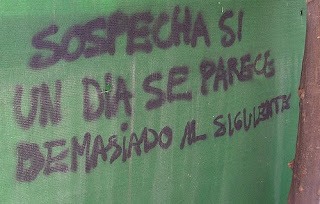 SOSPECHA SI
UN DÍA SE PARECE
DEMASIADO AL SIGUIENTE